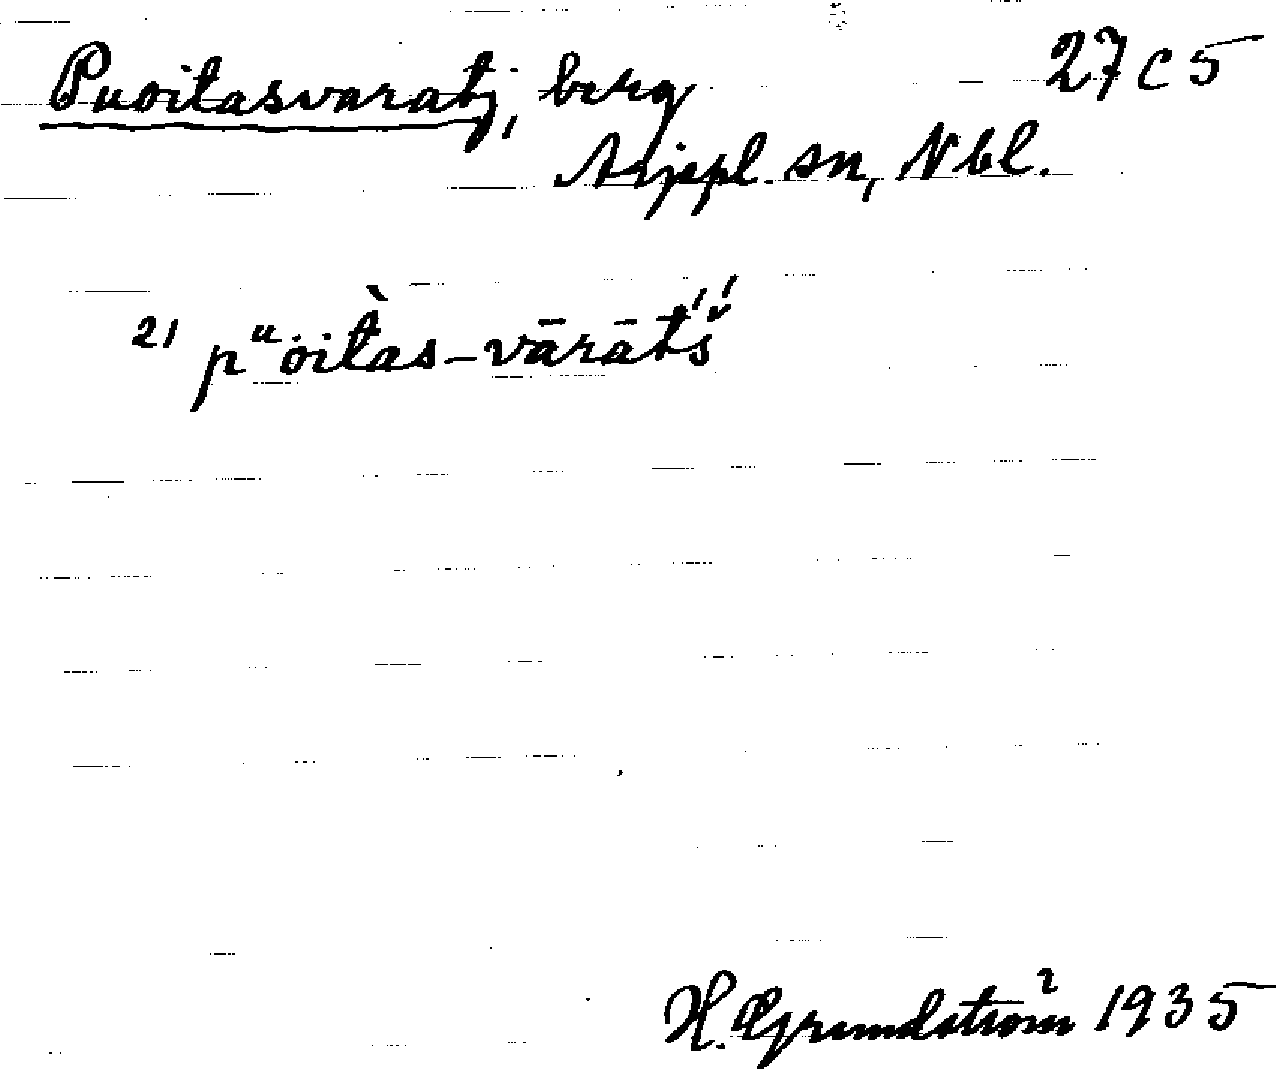 Puoitasvaratj, berg 27 c 5
Arjepl. sn, Nbl.
21 pᵘȯit̀as-vārāt́š́
H. Grundström 1935